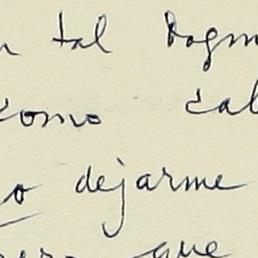 tal Dogm
como cal
dejarme
que